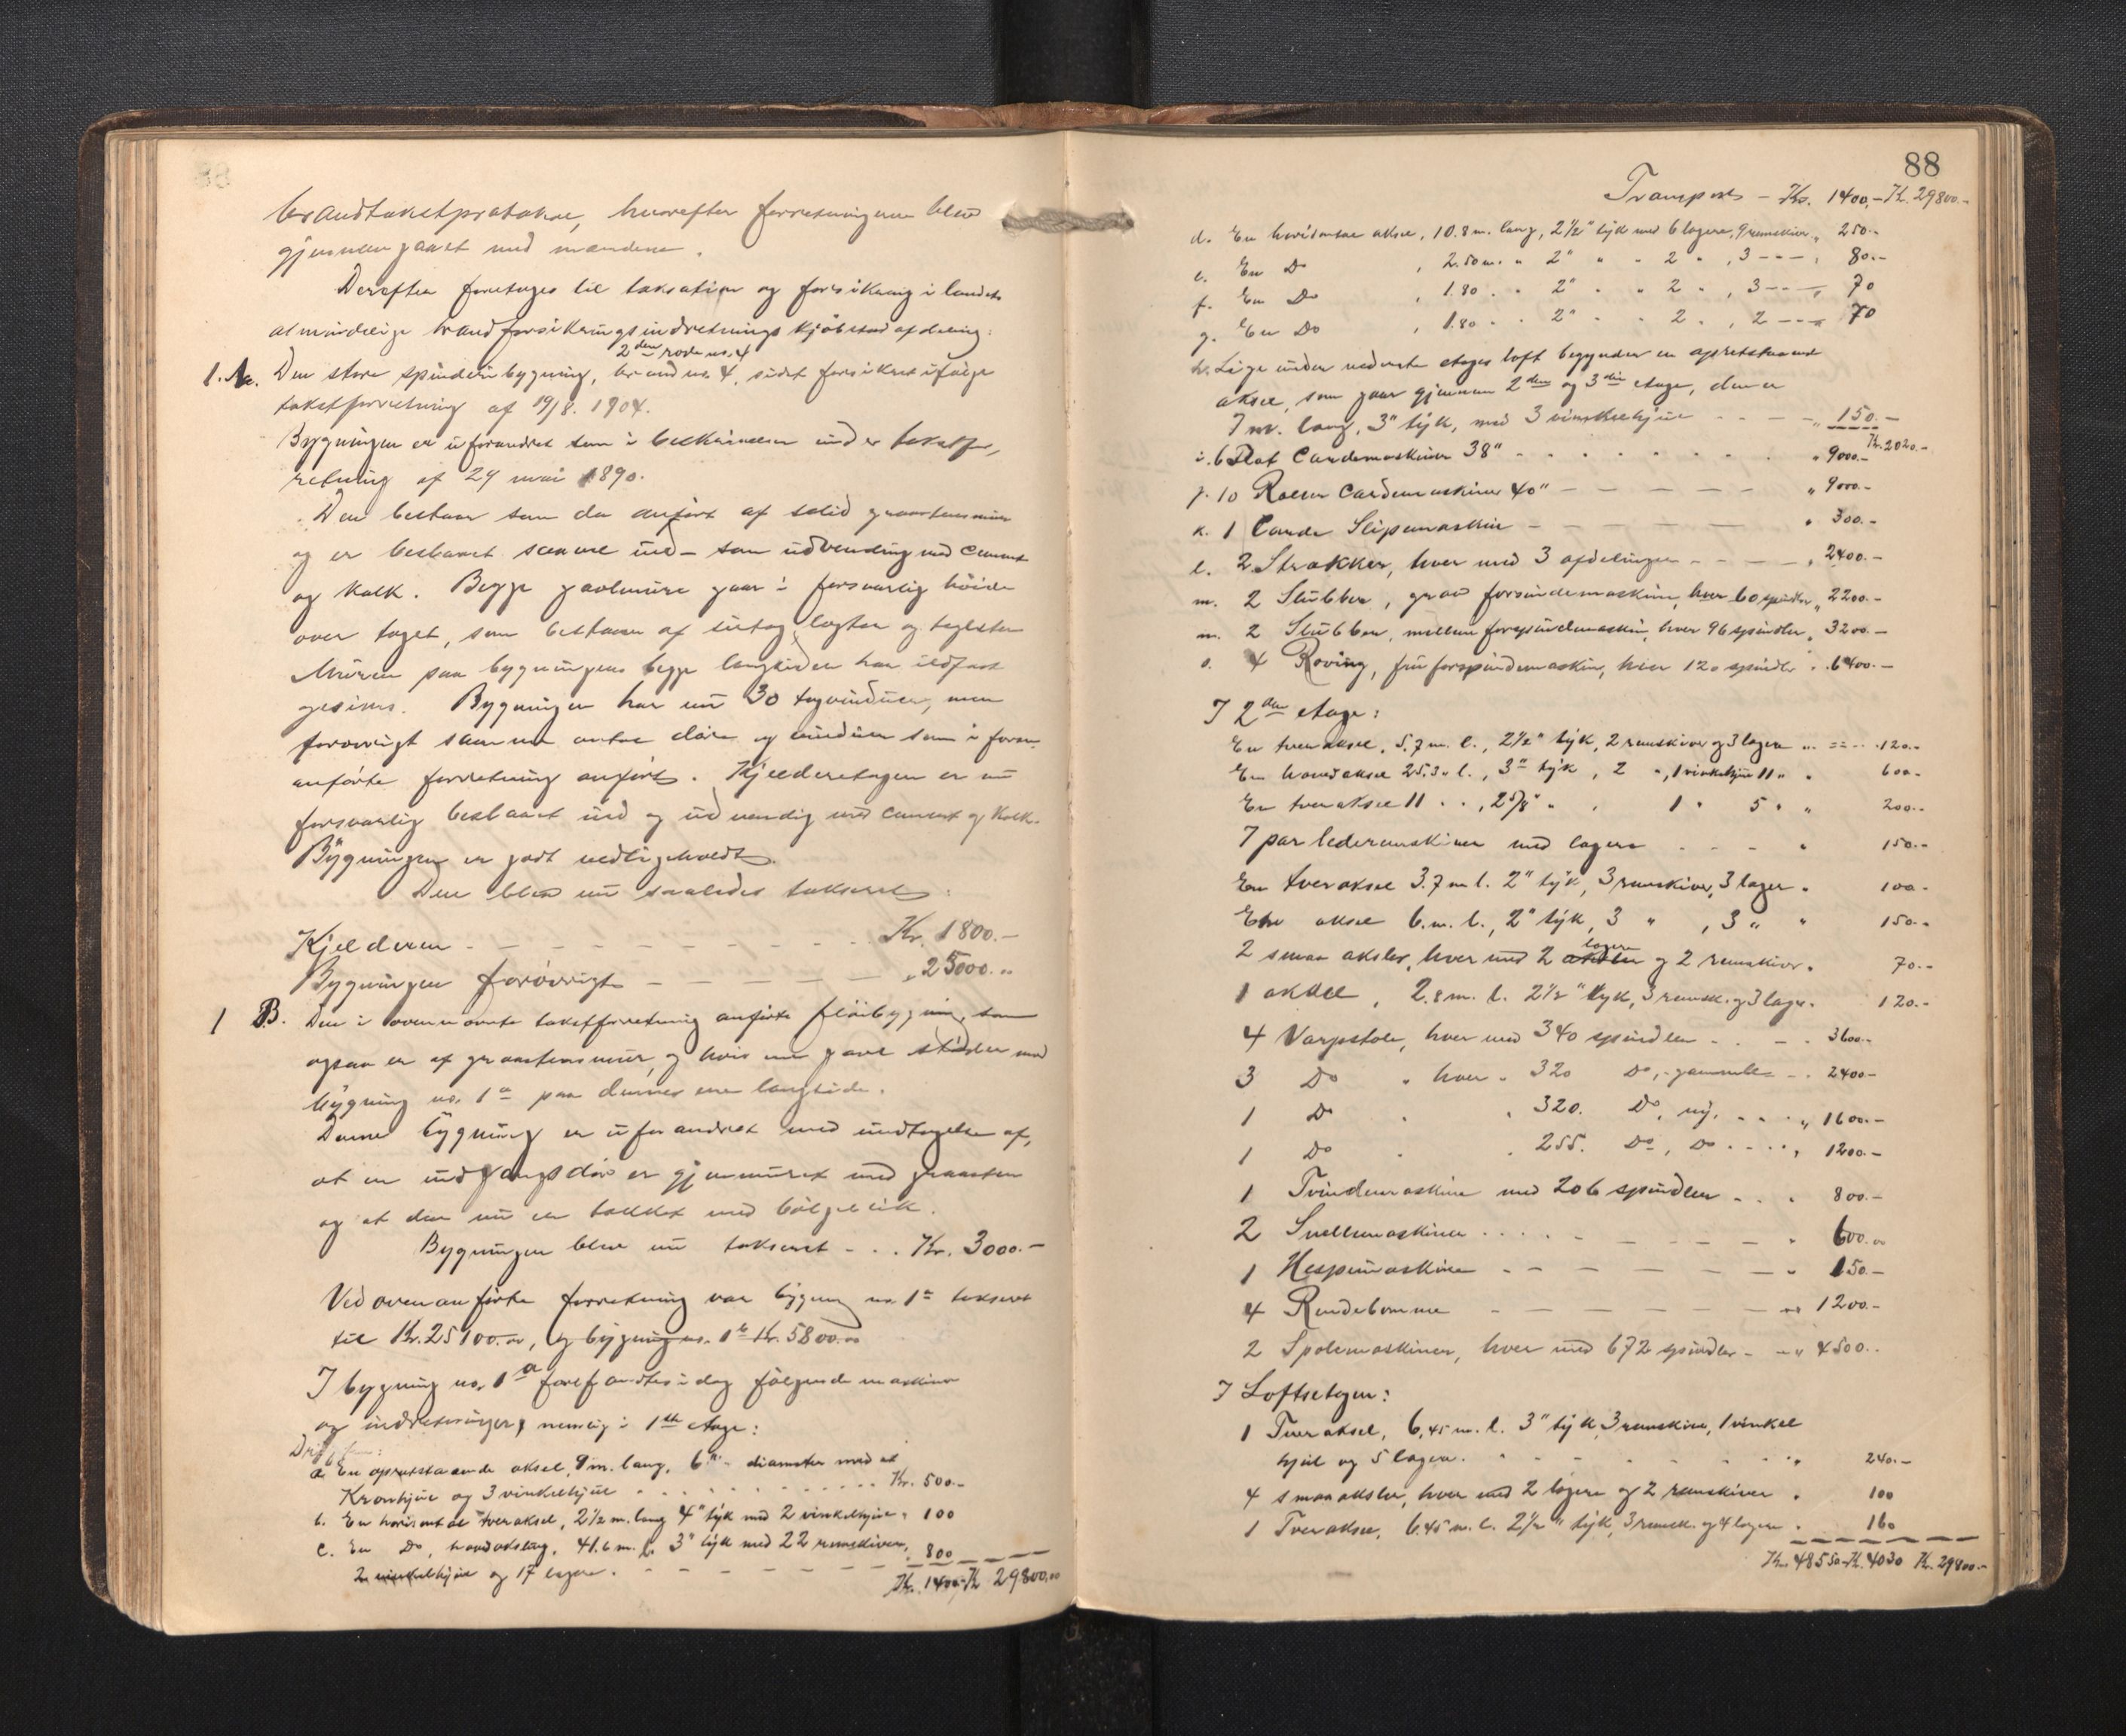 brandtakstprotokol, hvorefter forretningen blev
gjennemgaaet med mændene.
Derefter foretoges til taksation og forsikring i landets
almindelige brandforsikringsindretnings kjøbstadafdeling:
2den rode no. 4
1. A. Den store spinderibygning, brand no. 4, sidst forsikret ifølge
takstforretning af 19/8. 1904.
Bygningen er uforandret som i beskrivelsen under takstfor,
retning af 29 mai 1890.
Den bestaar som da anført af solid graastensmur
og er beslaaet saavel ind- som udvendig med cement
og kalk. Begge gavlmure gaar i forsvarlig høide
over taget, som bestaar af sutag, lægter og taglsten
Muren paa bygningens begge langsider har ildfast
gesims. Bygningen har nu 30 tagvinduer, men
forøvrigt samme antal døre og vinduer som i foran
anførte forretning anført. Kjelderetagen er nu
forsvarlig beslaaet ind og udvendig med cement og kalk.
Bygningen er godt vedligeholdt.
Den blev nu saaledes takseret:
Kjelderen - - - - Kr. 1800.-
Bygningen forøvrigt - - - - „ 25000.„
1 B. Den i ovennævnte takstforretning anførte fløibygning, som
ogsaa er af graastensmur, og hvis ene gavl støder mod
bygning no. 1a paa dennes ene langside.
Denne bygning er uforandret med undtagelse af,
at en indgangsdør er gjenmuret med graasten
og at den nu er tækket med bølgeblik.
Bygningen blev nu takseret - . . Kr. 3000.-
Ved ovenanførte forretning var bygning no. 1a takseret
til Kr. 25100.00, og bygning no. 1b Kr. 5800.00
I bygning no. 1a forefandtes idag følgende maskiner
og indretninger, nemlig i 1ste etage:
a. En opretstaaende aksel, 9 m. lang, 6" diameter med et
Kronhjul og 3 vinkelhjul . . . . Kr. 500.-
b. En horisontal tveraksel, 2½ m. lang 4" tyk med 2 vinkelhjul „ 100
c. En Do, hovedaksling, 41.6 m. l. 3" tyk med 22 remskiver,
2 vinkelhjul og 17 lagere. - - - - „ 800
Kr. 1400.- Kr. 29800.00
88
Transport - Kr. 1400.- Kr. 29800.-
d. En horisontal aksel, 10.8 m. lang, 2½" tyk med 6 lagere, 9 remskiver „ 250.-
e. En Do , 2.50 m. „ 2" „ „ 2 „ , 3 - - - „ 80.-
f. En Do , 1.80 . „ 2" „ „ 2 „ , 3 - - - „ 70
g. En Do , 1.80 „ „ 2" „ „ 2 „ , 2 - - - „ 70
h. Lige under nederste etages loft begynder en opretstaaende
aksel, som gaar gjennem 2den og 3die etage, den er
7 m. lang, 3" tyk, med 3 vinkelhjul - - - - „ 150.-
Kr. 2020.-
i. 6 Flat Cardemaskiner 38" - . . . . „ 9000.-
j. 10 Roller Cardemaskiner 40" - - - - - „ 9000.-
k. 1 Carde Slipemaskin - - - - - „ 300.-
l. 2 Strækker, hver med 3 afdelinger - - - - „ 2400.-
m. 2 Slubber, grov forspindemaskine, hver 60 spindler „ 2200.-
n. 2 Slubber, mellem forspindemaskin, hver 96 spindler „ 3200.-
o. 4 Roving, fin forspindemaskin, hver 120 spindler „ 6400.-
I 2den etage:
En tveraksel, 5.7 m. l., 2½" tyk, 2 remskiver og 3 lagere „ = = - - 120.-
En hovedaksel 25.30 l., 3" tyk, 2 „, 1 vinkelhjul 11 „ „ 600-
En tveraksel 11 . . , 2⅝" „ . 1 „ 5 „ „ 200.-
7 par lederemskiver med lagere - - - „ 150.-
En tveraksel 3.7 m l. 2" tyk, 3 remskiver, 3 lager „ 100-
En aksel 6. m. l., 2" tyk, 3 „ , 3 „ „ 150.-
2 smaa aksler, hver med 2 lagere og 2 remskiver „ 70.-
1 aksel, 2.8 m. l. 2½" tyk, 3 remsk. og 3 lagre. 120.-
4 Varpstole, hver med 340 spindler - . - . 3600.-
3 Do „ hver „ 320 Do, gammel - . . 2400-
1 Do . „ 320. Do, ny. - . . . „ 1600.-
1 Do . . 255. Do, Do - . . . „ 1200.-
1 Tvindemaskine med 206 spindler - . . 800.-
2 Snellemaskiner . . . . - - - - „ 600.00
1 Hespemaskine - - - - - - „ 150.-
4 Rendebomme - - - - - - „ 1200.-
2 Spolemaskiner, hver med 672 spindler - - „ 4500..
I Loftsetagen:
1 Tveraksel, 6,45 m. l. 3" tyk, 3 remskiver, 1 vinkel
hjul og 5 lagere. - - - - „ 240.-
4 smaa aksler, hver med 2 lagere og 2 remskiver „ 100
1 Tveraksel, 6.45 m. l. 2½" tyk, 3 remsk. og 4 lagere . 160
Kr. 48550- Kr. 4030 Kr. 29800.-